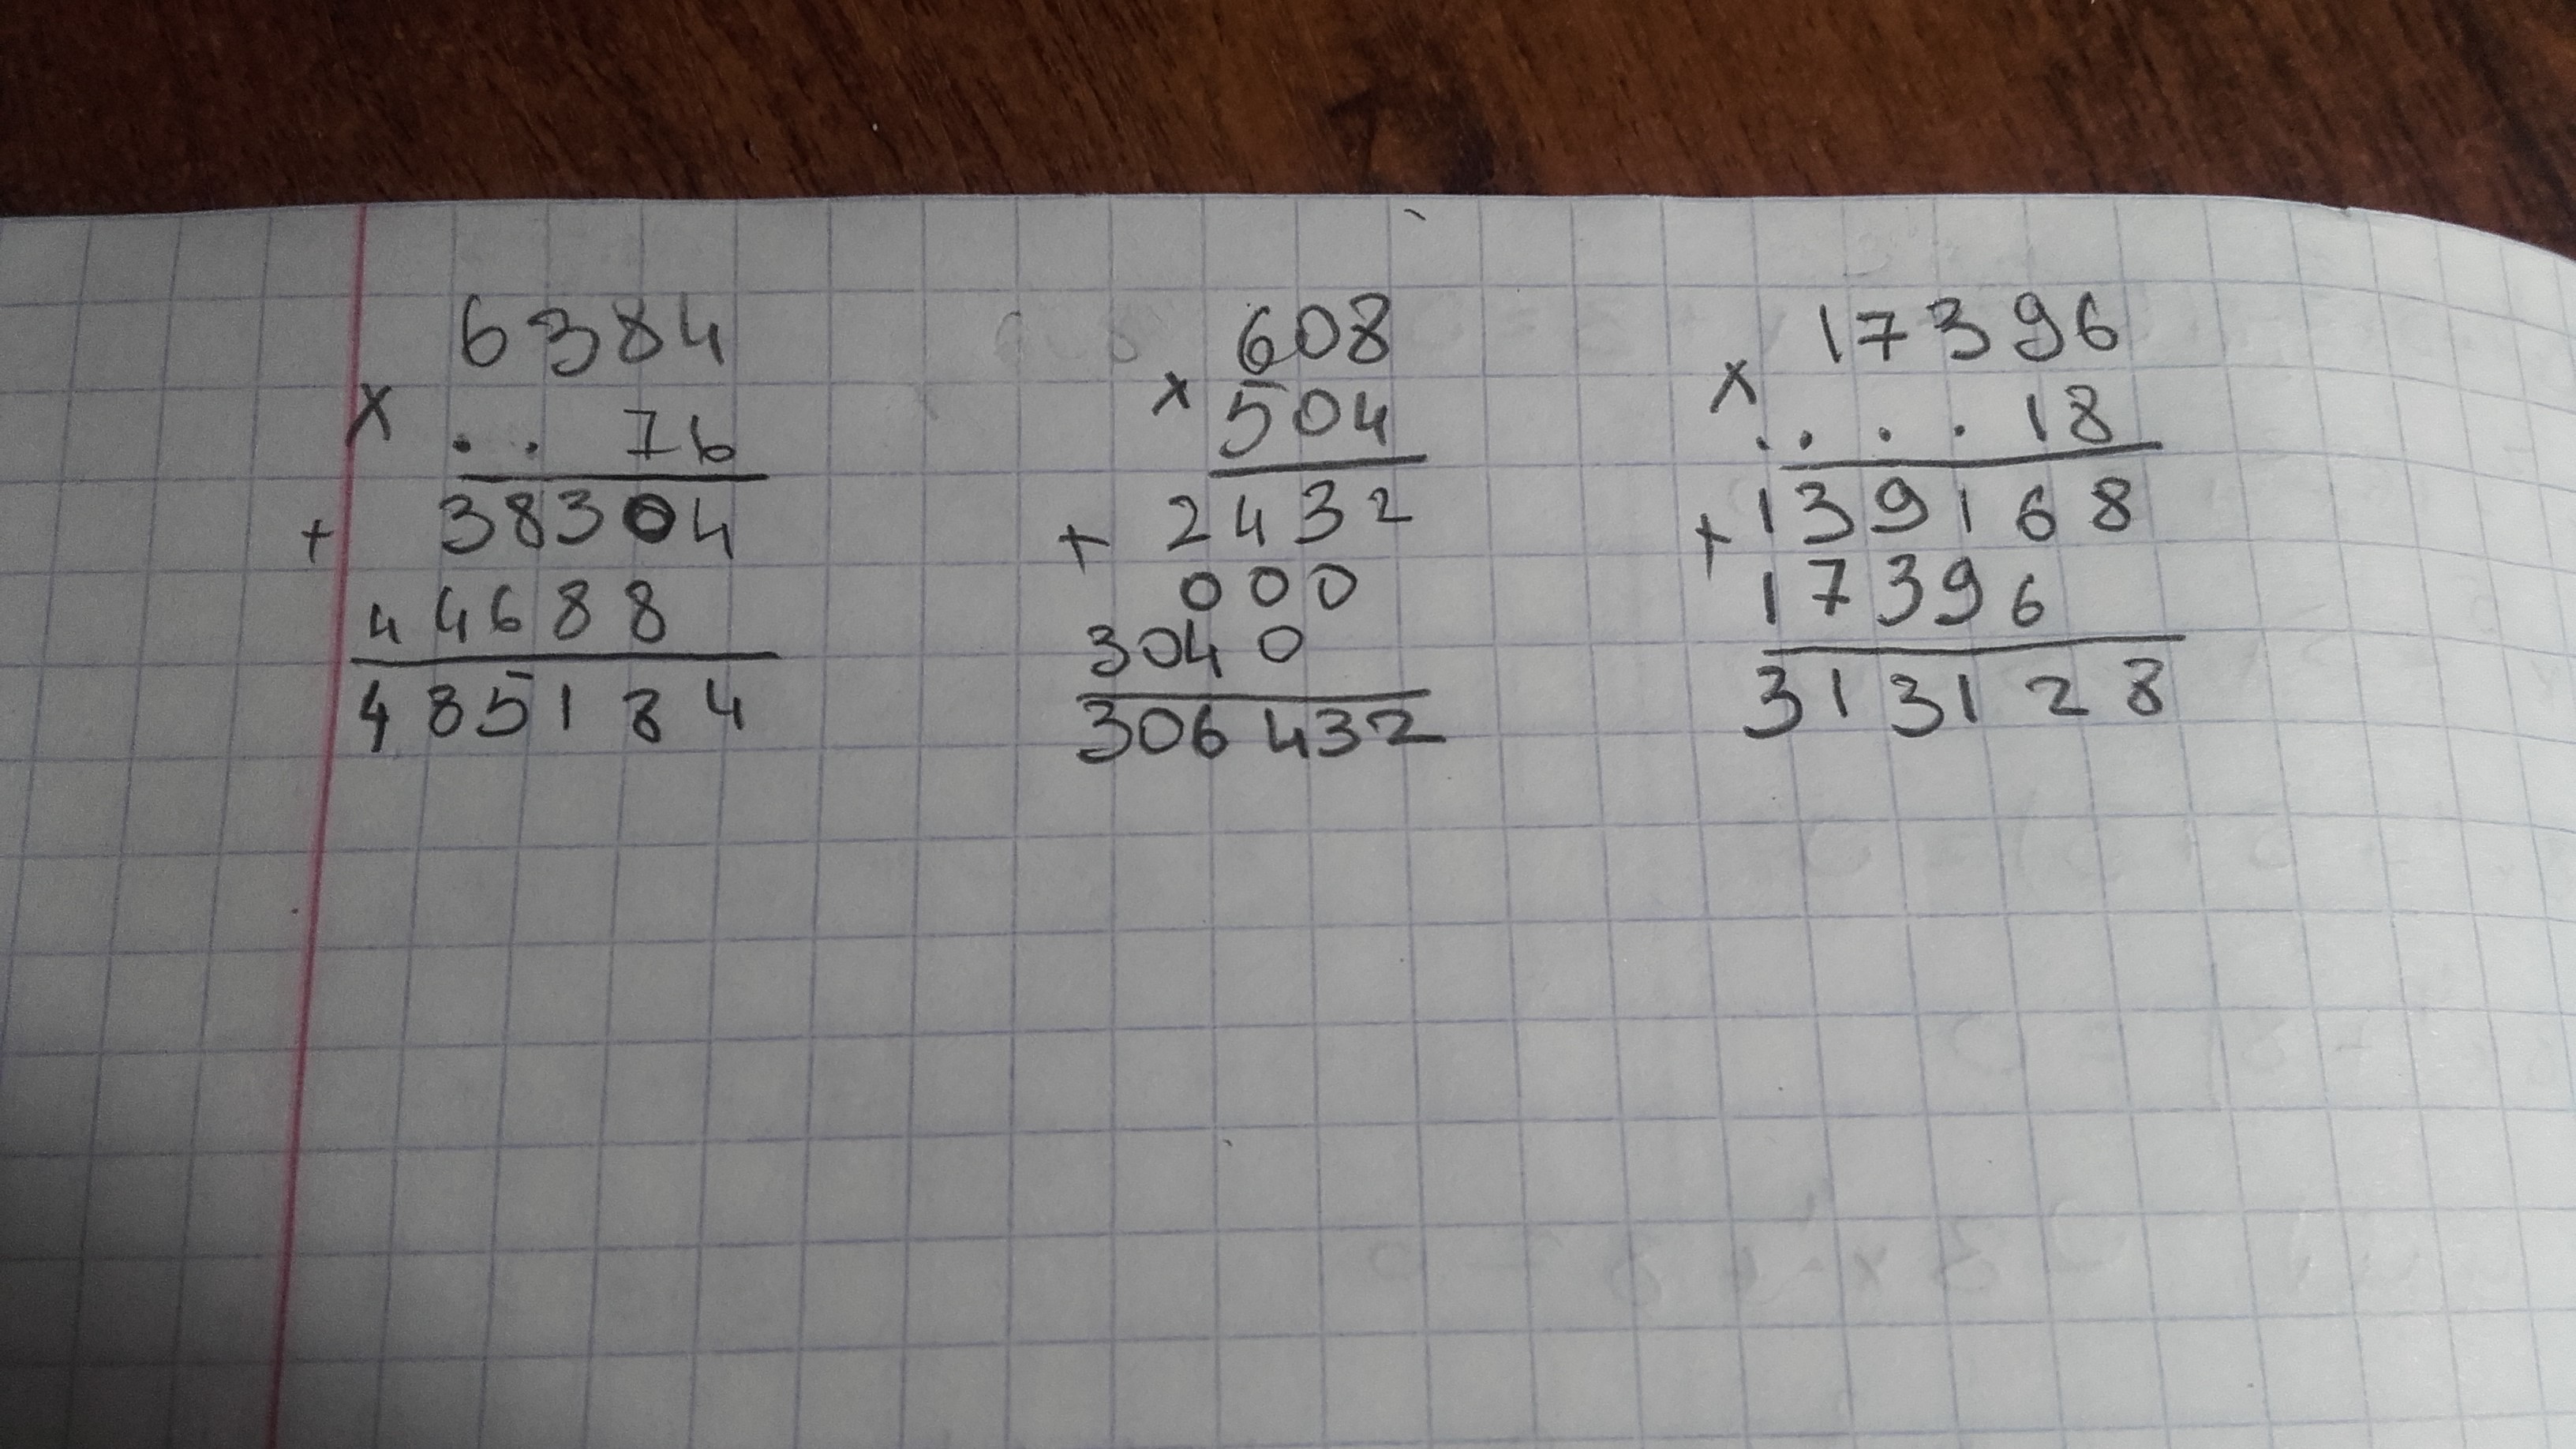 6384
× . . 76
38304
+
44688
485184
608
× 504
2432
+
000
3040
306432
17396
× . . . . 18
139168
+
17396
313128